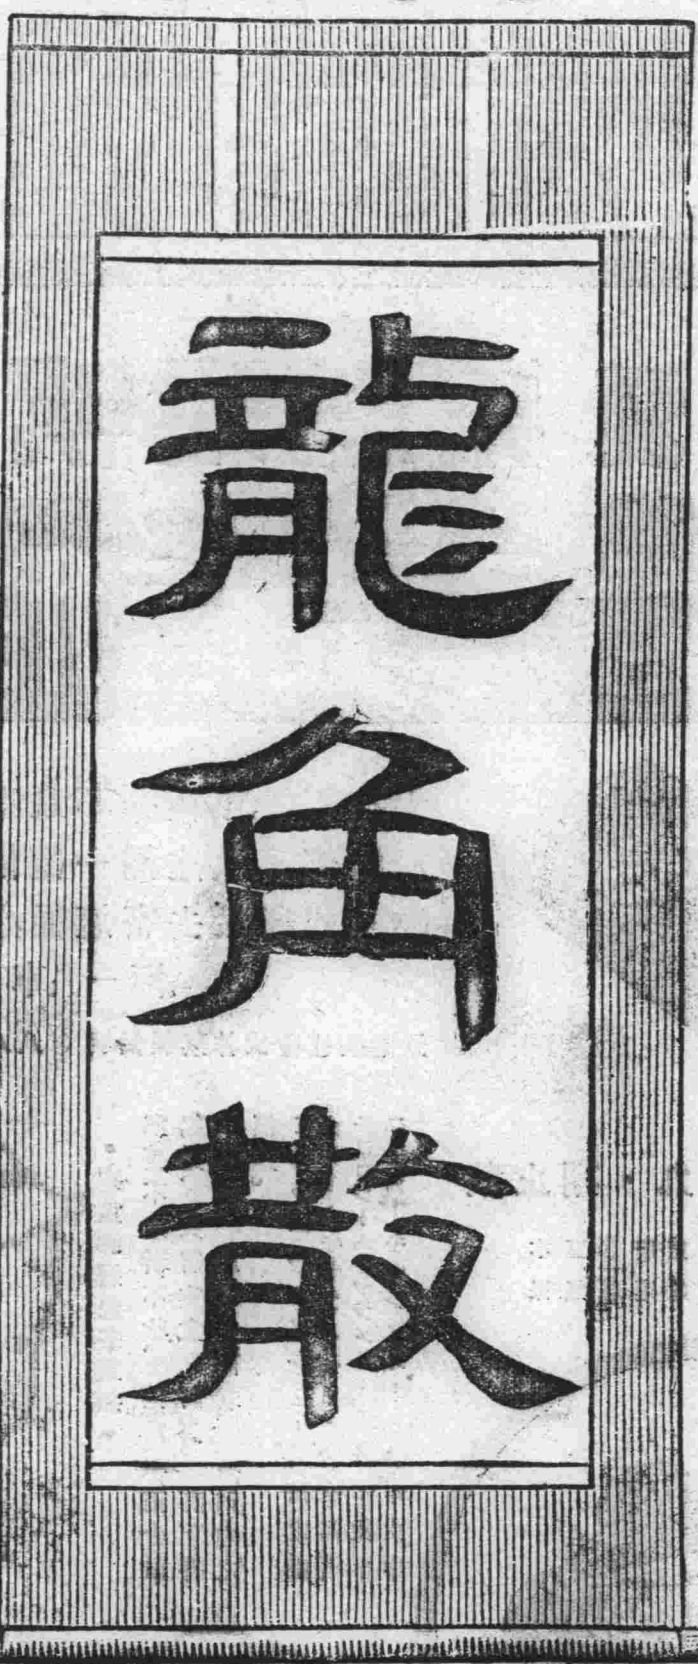 龍角散